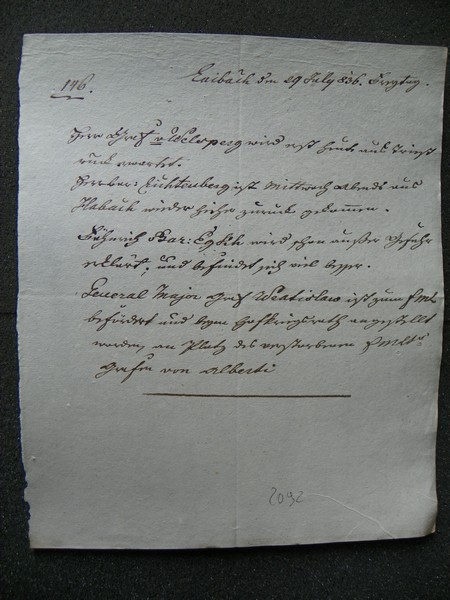 146.
Laibach den 29 July 836. Freytag.
Herr Graf v Welsperg wird erst heute aus Triest
rück erwartet.
Herr Bar: Lichtenberg ist Mittwoch Abends aus
Habach wieder hieher zurück gekommen.
Fähnrich Bar: wird schon außer Gefahr
erklärt, und befindet sich viel besser.
General Major Graf Wratislaw ist zum FML
befördert und beym Hofkriegsrath angestellt
worden, an Platz des verstorbenen FMLts
Grafen von Alberti
2092